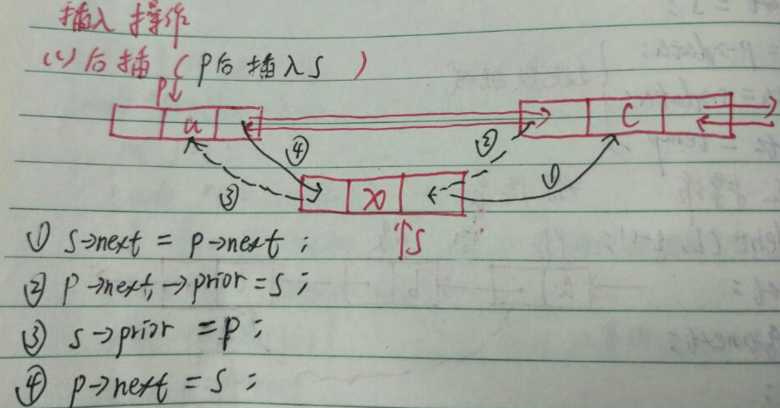 插入操作
(1) 后插 (p后插入s)
p
a
C
④
②
③
①
x
s
① s->next = p->next ;
② p->next->prior = s ;
③ s->prior = p ;
④ p->next = s ;